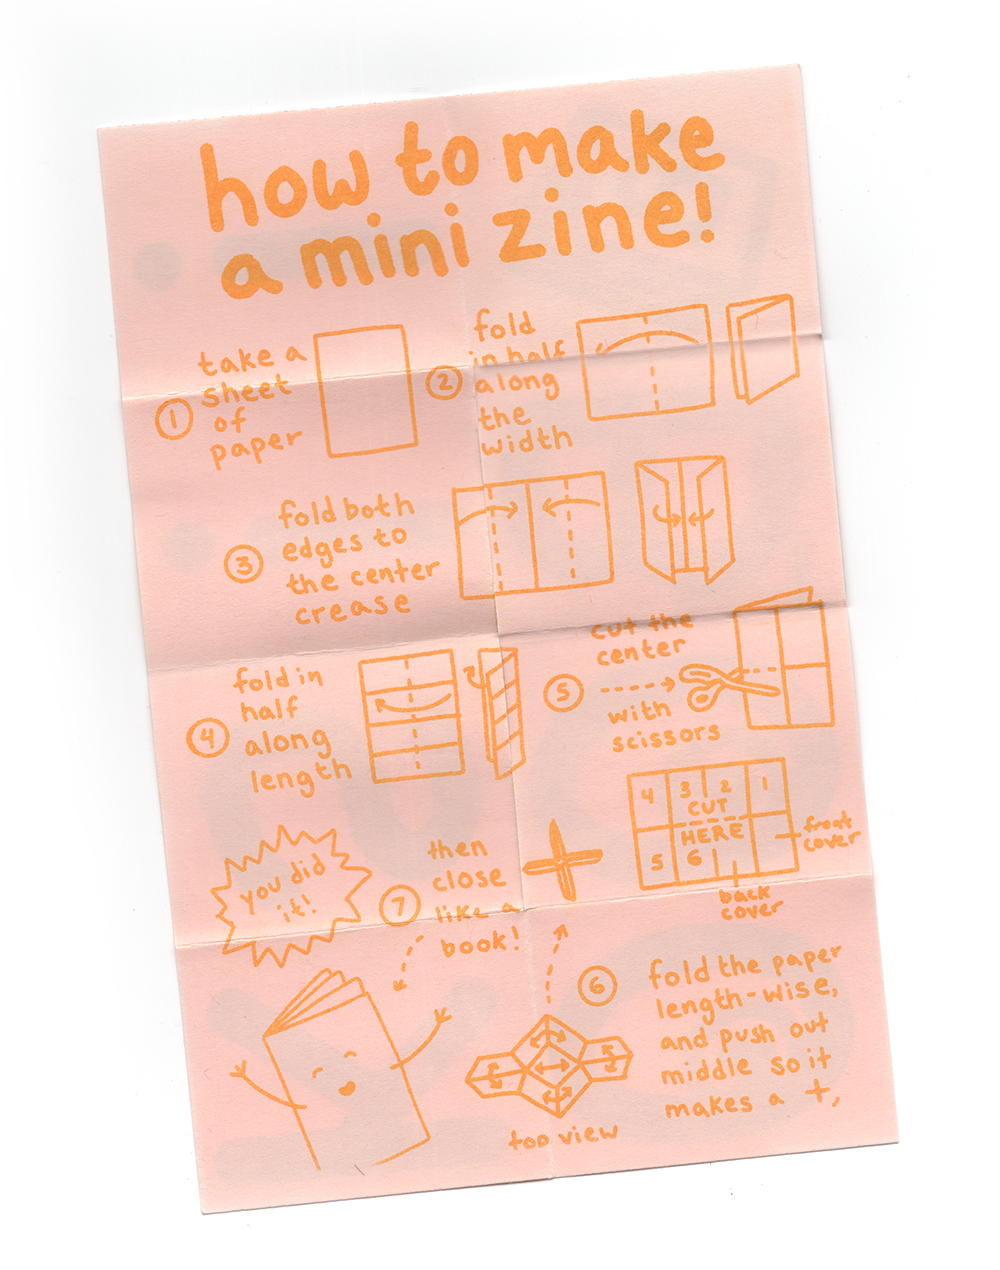 how to make
a mini zine!
1
take a
sheet
of
paper
2
fold
in half
along
the
width
3
fold both
edges to
the center
crease
4
fold in
half
along
length
5
cut the
center
with
scissors
4 3 2 1
CUT
HERE
5 6
front
cover
back
cover
6
fold the paper
length-wise,
and push out
middle so it
makes a +,
top view
7
then
close
like a
book!
you did
it!